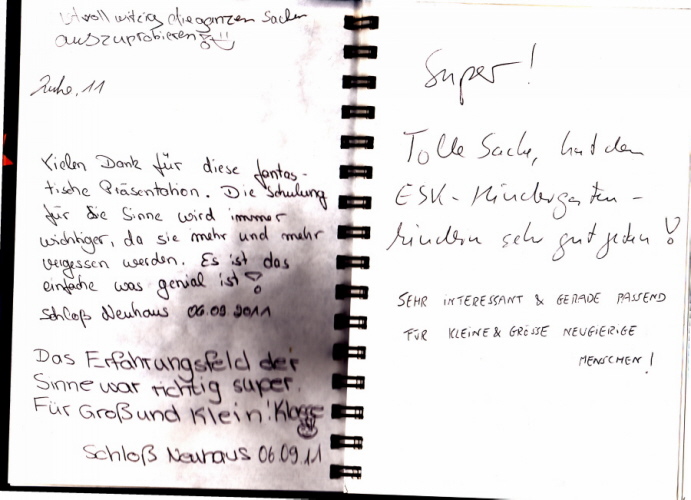 voll witzig die ganzen Sachen
auszuprobieren!
11
Vielen Dank für diese fantas-
tische Präsentation. Die Schulung
für die Sinne wird immer
wichtiger, da sie mehr und mehr
vergessen werden. Es ist das
einfache was genial ist!
Schloß Neuhaus 06.09.2011
Das Erfahrungsfeld der
Sinne war richtig super.
Für Groß und Klein! Klasse
Schloß Neuhaus 06.09.11
Super!
Tolle Sache, hat den
ESK-Kindergarten-
kindern sehr gut getan!
SEHR INTERESSANT & GERADE PASSEND
FÜR KLEINE & GROSSE NEUGIERIGE
MENSCHEN!